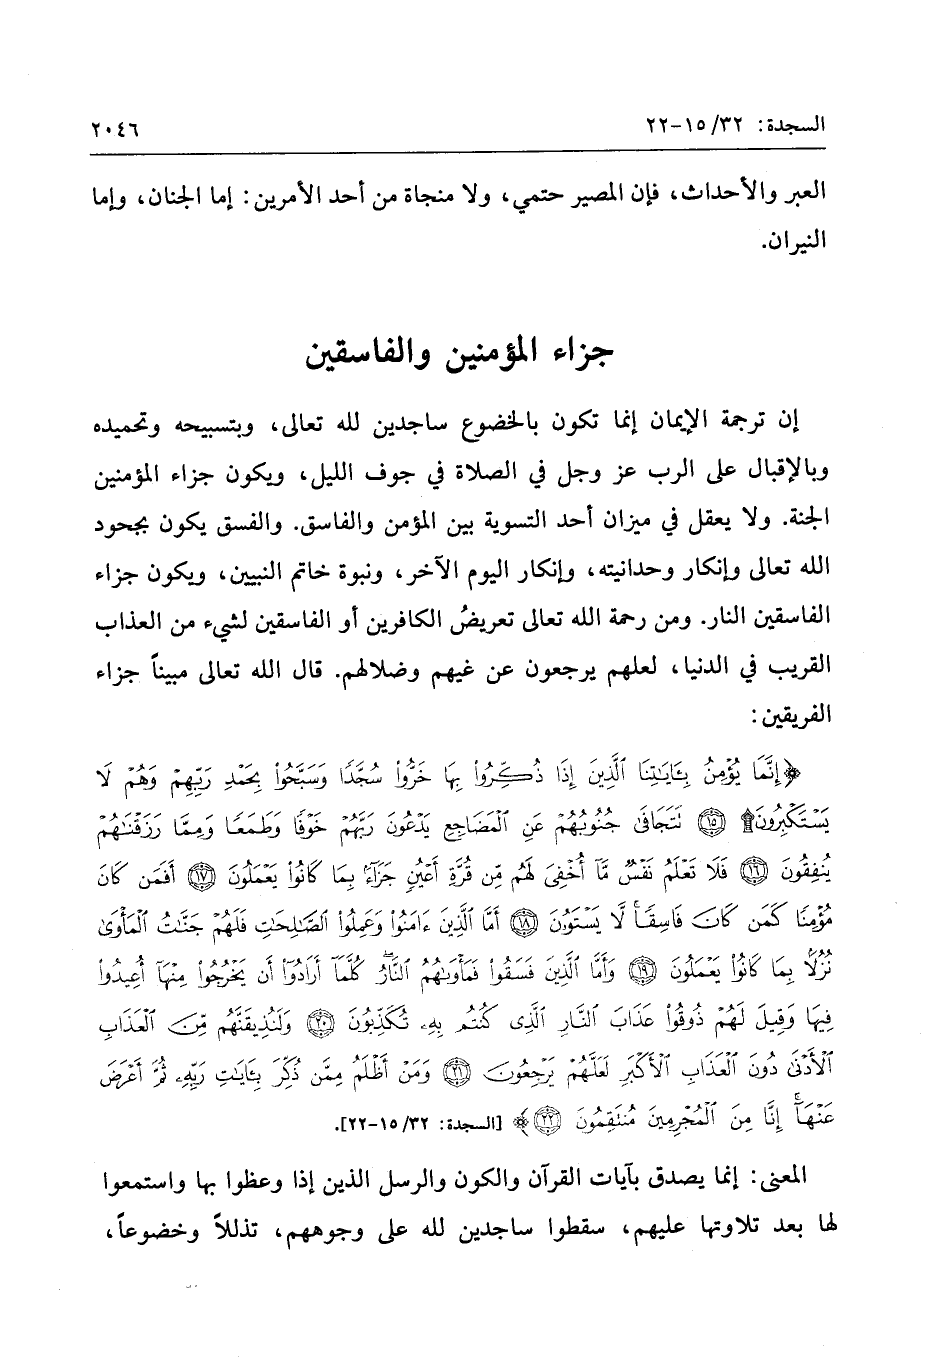 السجدة: ٣٢/ ١٥-٢٢ ٢٠٤٦
العبر والأحداث، فإن المصير حتمي، ولا منجاة من أحد الأمرين: إما الجنان، وإما
النيران.
جزاء المؤمنين والفاسقين
إن ترجمة الإيمان إنما تكون بالخضوع ساجدين لله تعالى، وبتسبيحه وتحميده
وبالإقبال على الرب عز وجل في الصلاة في جوف الليل، ويكون جزاء المؤمنين
الجنة. ولا يعقل في ميزان أحد التسوية بين المؤمن والفاسق. والفسق يكون بجحود
الله تعالى وإنكار وحدانيته، وإنكار اليوم الآخر، ونبوة خاتم النبيين، ويكون جزاء
الفاسقين النار. ومن رحمة الله تعالى تعريضُ الكافرين أو الفاسقين لشيء من العذاب
القريب في الدنيا، لعلهم يرجعون عن غيهم وضلالهم. قال الله تعالى مبيناً جزاء
الفريقين:
﴿إِنَّمَا يُؤْمِنُ بِـَٔايَـٰتِنَا ٱلَّذِينَ إِذَا ذُكِّرُوا۟ بِهَا خَرُّوا۟ سُجَّدًا وَسَبَّحُوا۟ بِحَمْدِ رَبِّهِمْ وَهُمْ لَا
يَسْتَكْبِرُونَ۩ ١٥ تَتَجَافَىٰ جُنُوبُهُمْ عَنِ ٱلْمَضَاجِعِ يَدْعُونَ رَبَّهُمْ خَوْفًا وَطَمَعًا وَمِمَّا رَزَقْنَـٰهُمْ
يُنفِقُونَ ١٦ فَلَا تَعْلَمُ نَفْسٌ مَّآ أُخْفِىَ لَهُم مِّن قُرَّةِ أَعْيُنٍ جَزَآءًۢ بِمَا كَانُوا۟ يَعْمَلُونَ ١٧ أَفَمَن كَانَ
مُؤْمِنًا كَمَن كَانَ فَاسِقًا ۚ لَّا يَسْتَوُۥنَ ١٨ أَمَّا ٱلَّذِينَ ءَامَنُوا۟ وَعَمِلُوا۟ ٱلصَّـٰلِحَـٰتِ فَلَهُمْ جَنَّـٰتُ ٱلْمَأْوَىٰ
نُزُلًۢا بِمَا كَانُوا۟ يَعْمَلُونَ ١٩ وَأَمَّا ٱلَّذِينَ فَسَقُوا۟ فَمَأْوَىٰهُمُ ٱلنَّارُ ۖ كُلَّمَآ أَرَادُوٓا۟ أَن يَخْرُجُوا۟ مِنْهَآ أُعِيدُوا۟
فِيهَا وَقِيلَ لَهُمْ ذُوقُوا۟ عَذَابَ ٱلنَّارِ ٱلَّذِى كُنتُم بِهِۦ تُكَذِّبُونَ ٢٠ وَلَنُذِيقَنَّهُم مِّنَ ٱلْعَذَابِ
ٱلْأَدْنَىٰ دُونَ ٱلْعَذَابِ ٱلْأَكْبَرِ لَعَلَّهُمْ يَرْجِعُونَ ٢١ وَمَنْ أَظْلَمُ مِمَّن ذُكِّرَ بِـَٔايَـٰتِ رَبِّهِۦ ثُمَّ أَعْرَضَ
عَنْهَآ ۚ إِنَّا مِنَ ٱلْمُجْرِمِينَ مُنتَقِمُونَ ٢٢﴾ [السجدة: ٣٢/ ١٥-٢٢].
المعنى: إنما يصدق بآيات القرآن والكون والرسل الذين إذا وعظوا بها واستمعوا
لها بعد تلاوتها عليهم، سقطوا ساجدين لله على وجوههم، تذللاً وخضوعاً،